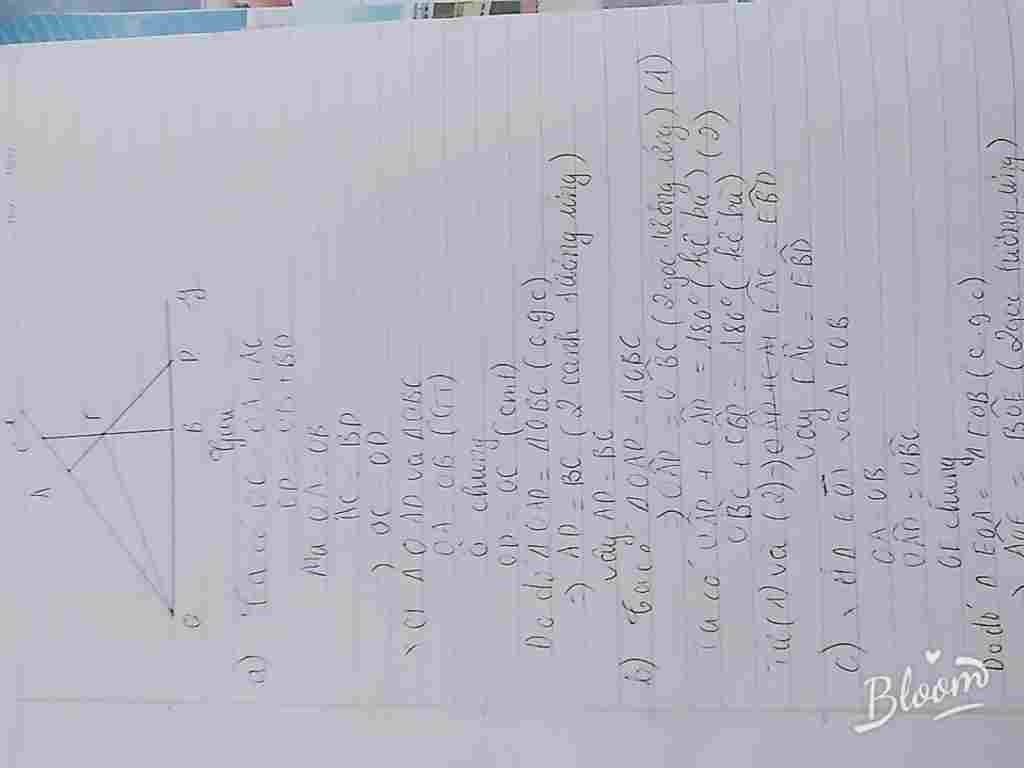 C x
A
E
O B D y
Giải
a) Ta có OC = OA + AC
OD = OB + BD
Mà OA = OB
AC = BD
=) OC = OD
Xét Δ OAD và ΔOBC
OA = OB (GT)
Ô chung
OD = OC (cmt)
Do đó ΔOAD = ΔOBC (c.g.c)
=) AD = BC (2 cạnh tương ứng)
Vậy AD = BC
b) Ta có ΔOAD = ΔOBC
=) OÂD = OB̂C (2 góc tương ứng) (1)
Ta có OÂD + CÂD = 180° (kề bù) (2)
OB̂C + CB̂D = 180° (kề bù)
Từ (1) và (2) =) EÂC = EB̂D
Vậy EÂC = EB̂D
c) Xét Δ EOA và Δ EOB
OA = OB
OÂD = OB̂C
OE chung
Do đó Δ EOA = Δ EOB (c.g.c)
=) AÔE = BÔE (2 góc tương ứng)
Bloom